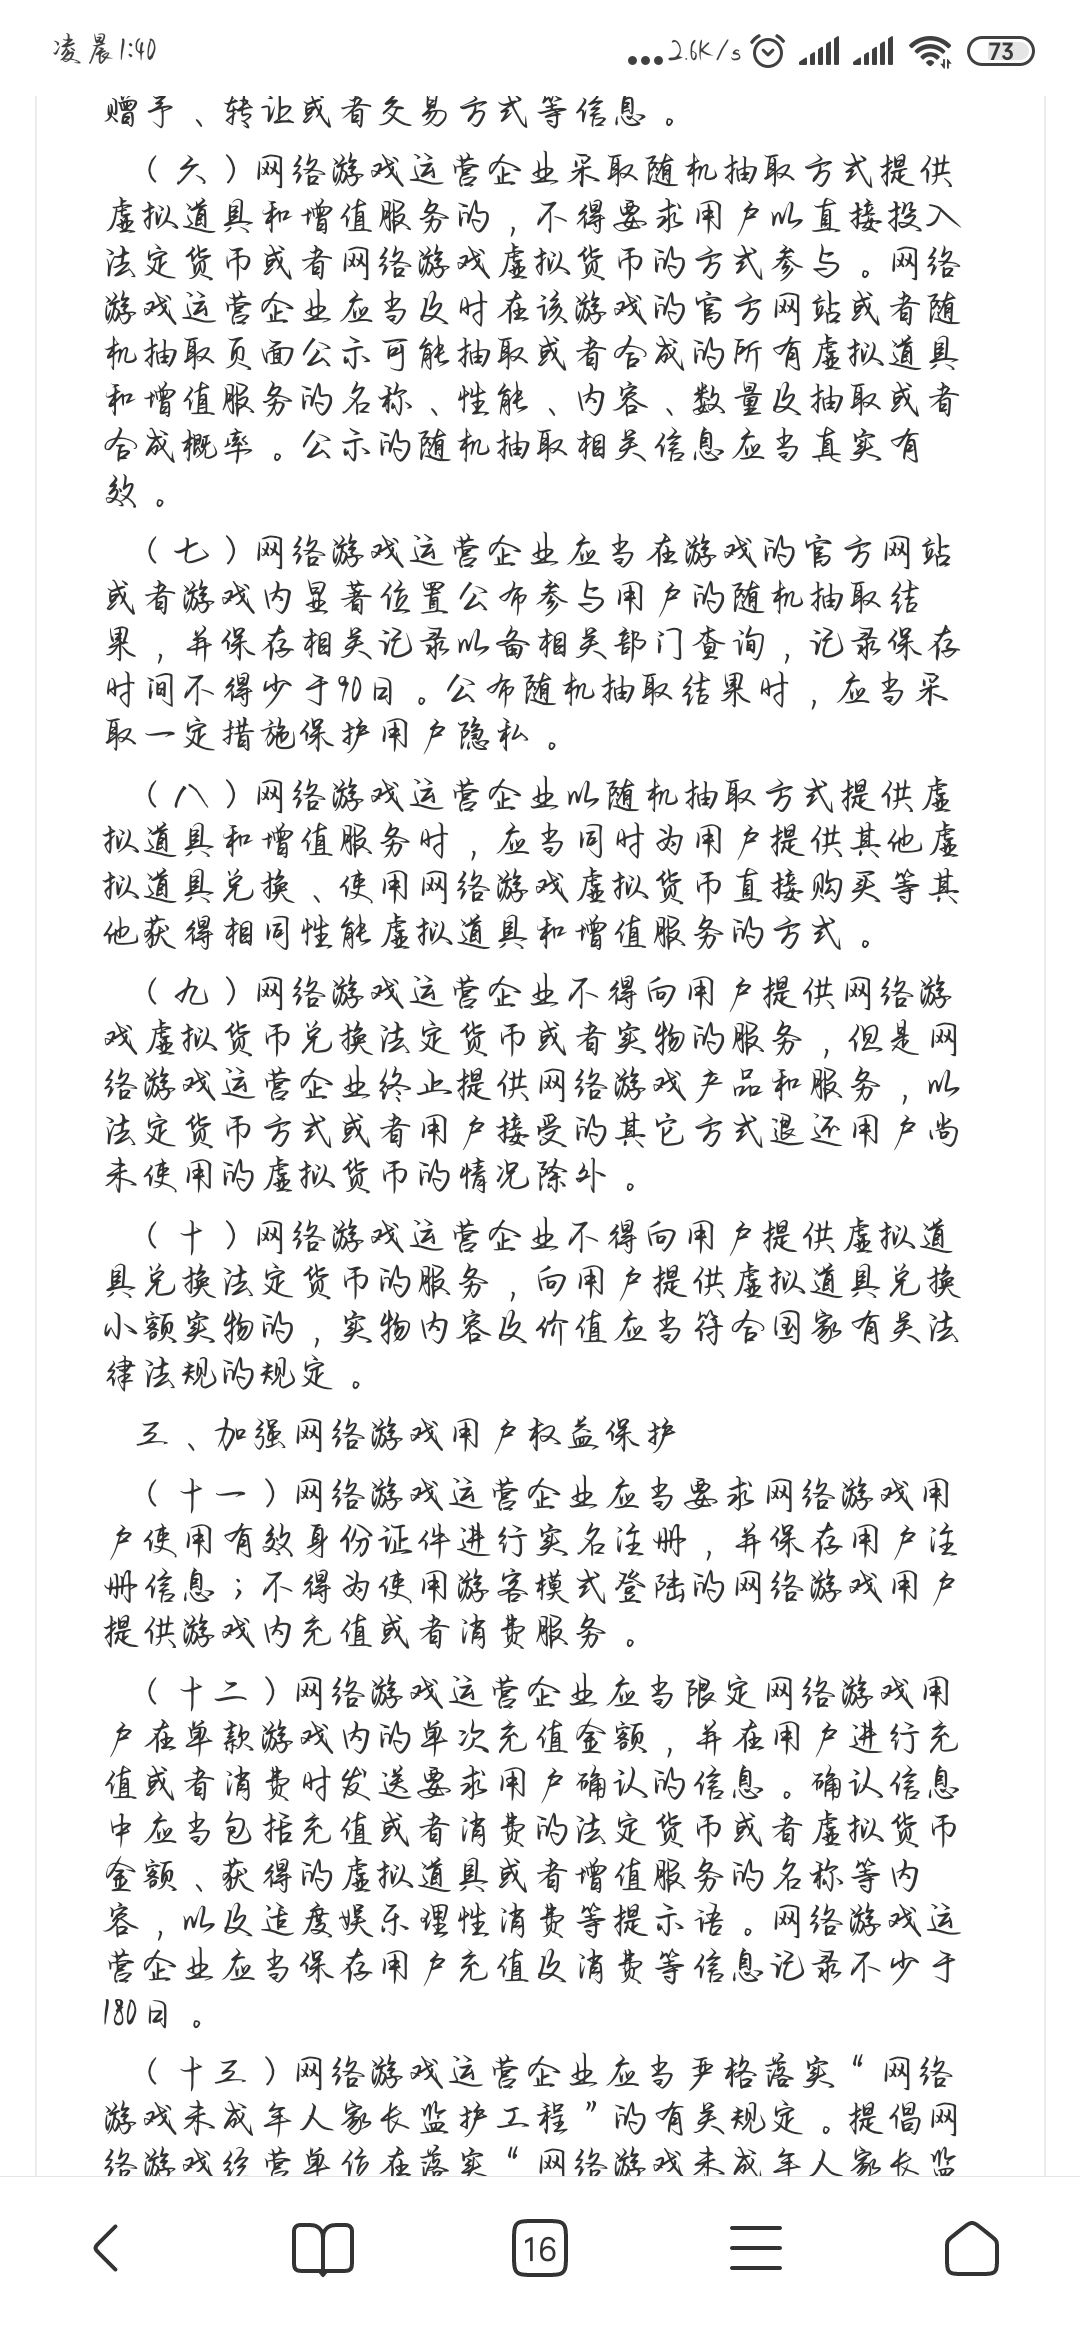 凌晨1:40
2.6K/s
73
赠予、转让或者交易方式等信息。
（六）网络游戏运营企业采取随机抽取方式提供
虚拟道具和增值服务的，不得要求用户以直接投入
法定货币或者网络游戏虚拟货币的方式参与。网络
游戏运营企业应当及时在该游戏的官方网站或者随
机抽取页面公示可能抽取或者合成的所有虚拟道具
和增值服务的名称、性能、内容、数量及抽取或者
合成概率。公示的随机抽取相关信息应当真实有
效。
（七）网络游戏运营企业应当在游戏的官方网站
或者游戏内显著位置公布参与用户的随机抽取结
果，并保存相关记录以备相关部门查询，记录保存
时间不得少于90日。公布随机抽取结果时，应当采
取一定措施保护用户隐私。
（八）网络游戏运营企业以随机抽取方式提供虚
拟道具和增值服务时，应当同时为用户提供其他虚
拟道具兑换、使用网络游戏虚拟货币直接购买等其
他获得相同性能虚拟道具和增值服务的方式。
（九）网络游戏运营企业不得向用户提供网络游
戏虚拟货币兑换法定货币或者实物的服务，但是网
络游戏运营企业终止提供网络游戏产品和服务，以
法定货币方式或者用户接受的其它方式退还用户尚
未使用的虚拟货币的情况除外。
（十）网络游戏运营企业不得向用户提供虚拟道
具兑换法定货币的服务，向用户提供虚拟道具兑换
小额实物的，实物内容及价值应当符合国家有关法
律法规的规定。
三、加强网络游戏用户权益保护
（十一）网络游戏运营企业应当要求网络游戏用
户使用有效身份证件进行实名注册，并保存用户注
册信息；不得为使用游客模式登陆的网络游戏用户
提供游戏内充值或者消费服务。
（十二）网络游戏运营企业应当限定网络游戏用
户在单款游戏内的单次充值金额，并在用户进行充
值或者消费时发送要求用户确认的信息。确认信息
中应当包括充值或者消费的法定货币或者虚拟货币
金额、获得的虚拟道具或者增值服务的名称等内
容，以及适度娱乐理性消费等提示语。网络游戏运
营企业应当保存用户充值及消费等信息记录不少于
180日。
（十三）网络游戏运营企业应当严格落实“网络
游戏未成年人家长监护工程”的有关规定。提倡网
络游戏经营单位在落实“网络游戏未成年人家长监
16